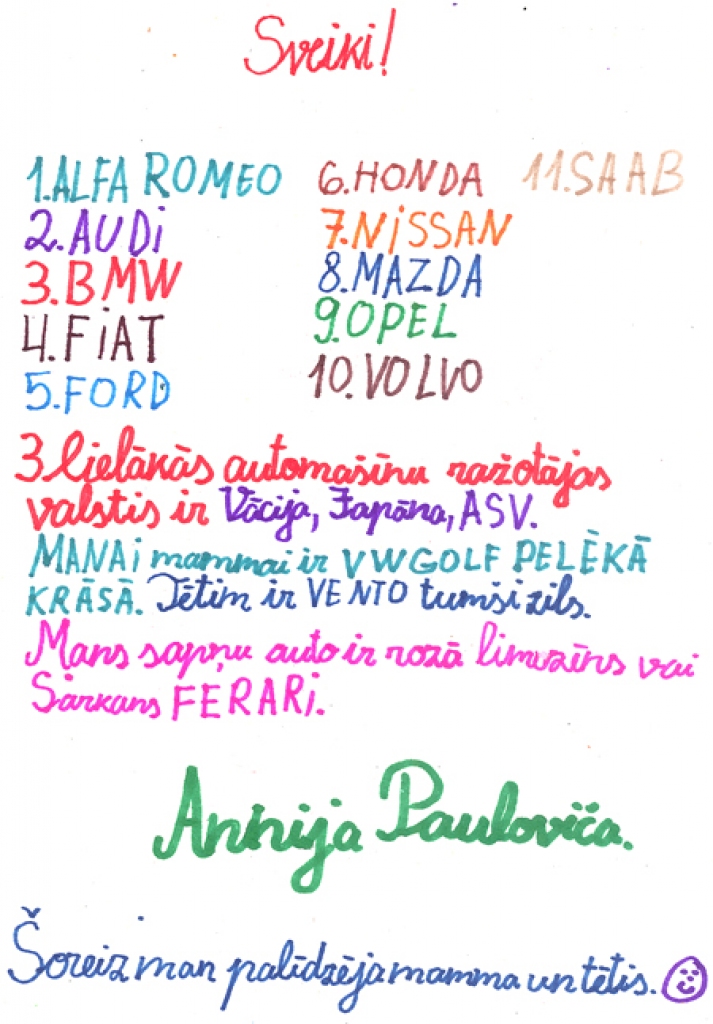 Sveiki!
1.ALFA ROMEO 6.HONDA 11.SAAB
2.AUDi 7.NiSSAN
3.BMW 8.MAZDA
4.FiAT 9.OPEL
5.FORD 10.VOLVO
3 lielākās automašīnu ražotājas
valstis ir Vācija, Japāna, ASV.
MANAi mammai ir VWGOLF PELĒKĀ
KRĀSĀ. Tētim ir VENTO tumši zils.
Mans sapņu auto ir rozā limuzīns vai
Sarkans FERARi.
Annija Pauloviča.
Šoreiz man palīdzēja mamma un tētis.